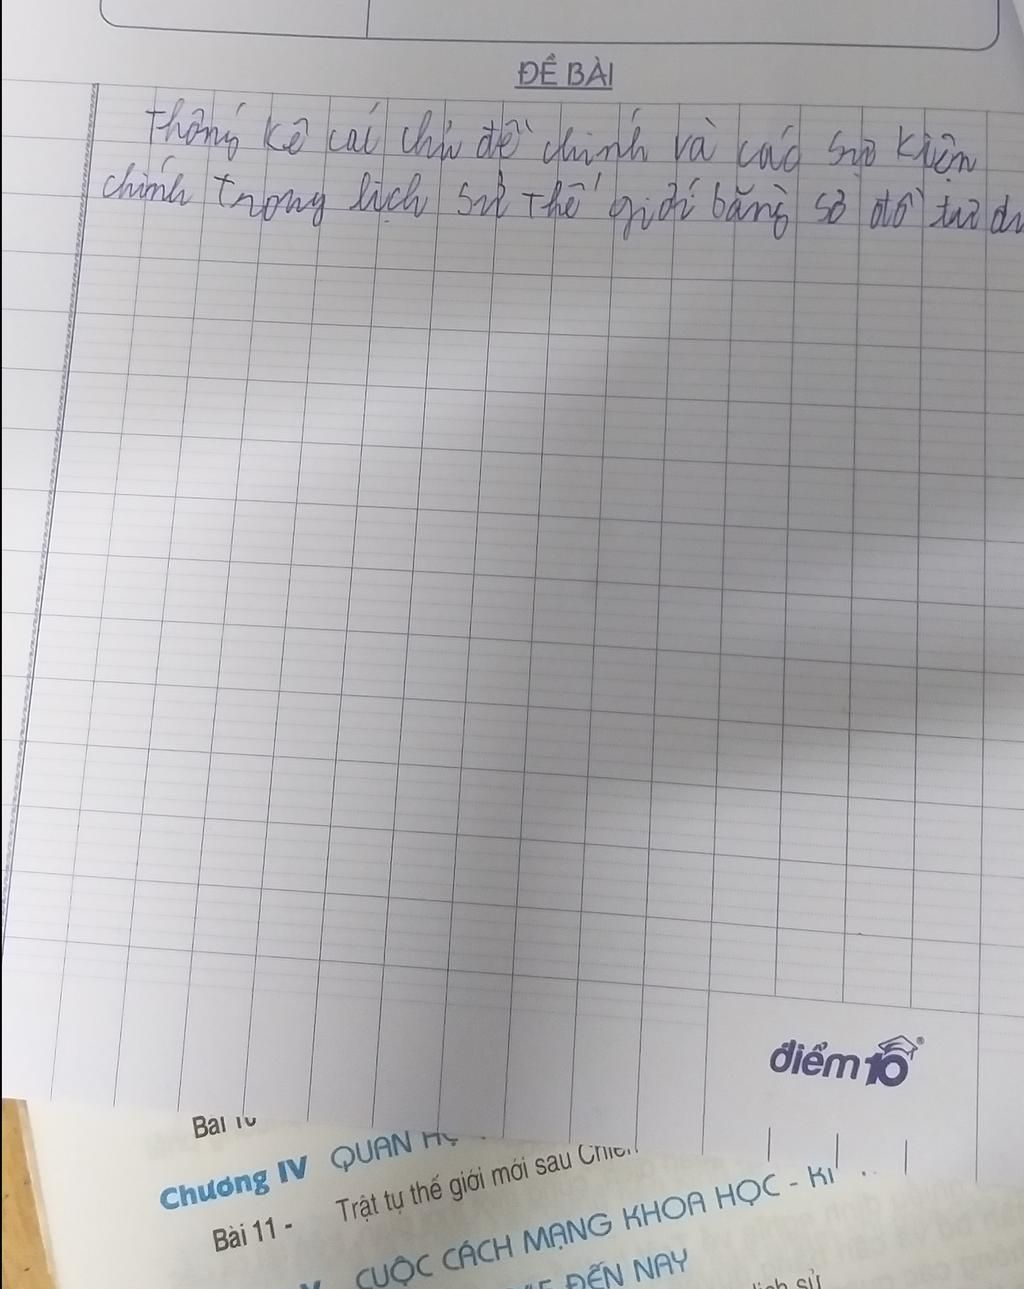 ĐỀ BÀI
Thống kê các chủ đề chính và các sự kiện
chính trong lịch sử thế giới bằng sơ đồ tư
điểm 10
Bài 10
Chương IV QUAN
Bài 11 - Trật tự thế giới mới sau
CUỘC CÁCH MẠNG KHOA HỌC - KĨ
ĐẾN NAY
lịch sử